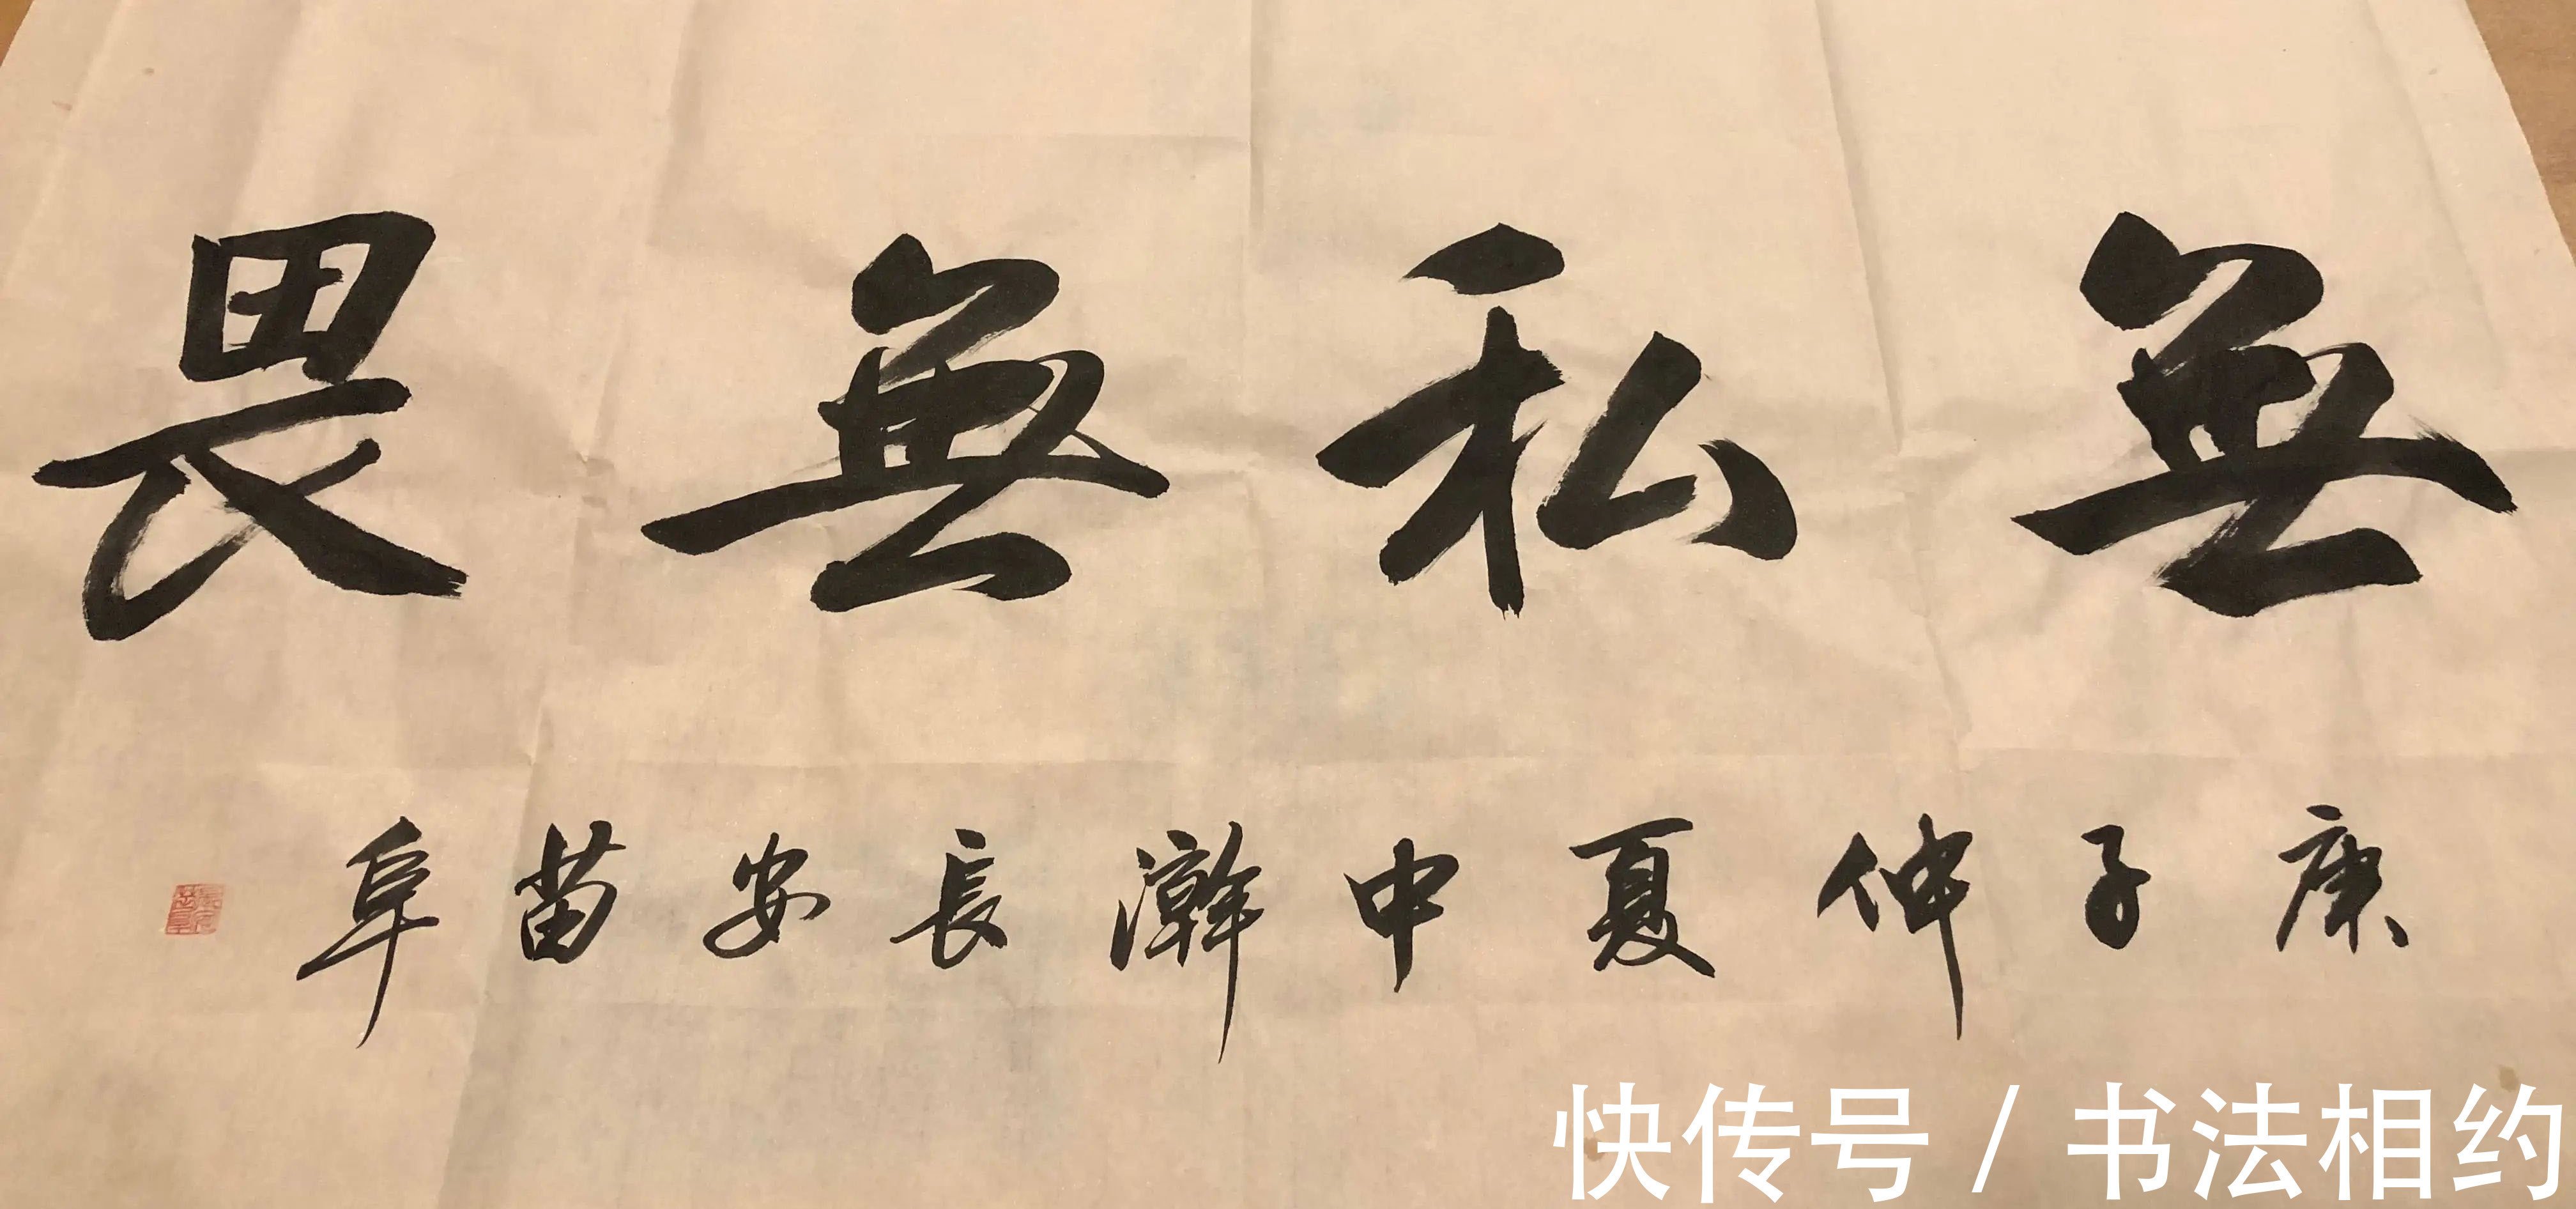 無私無畏
庚子仲夏中澣長安苗阜
快传号 / 书法相约